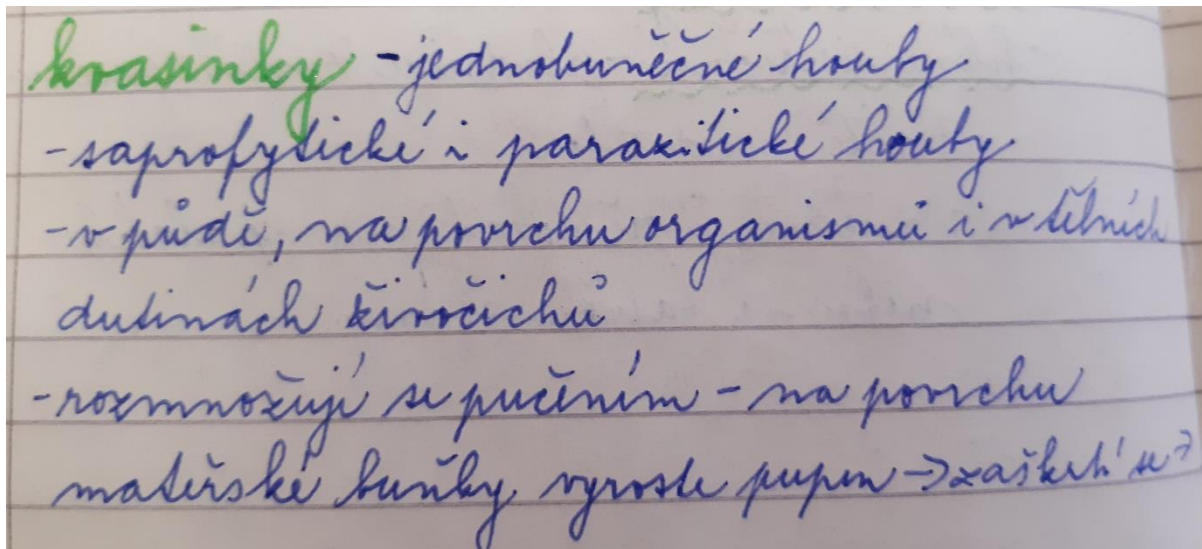 kvasinky - jednobuněčné houby
- saprofytické i parazitické houby
- v půdě, na povrchu organismů i v tělních
dutinách živočichů
- rozmnožují se pučením - na povrchu
mateřské buňky vyroste pupen → zaškrtí se →